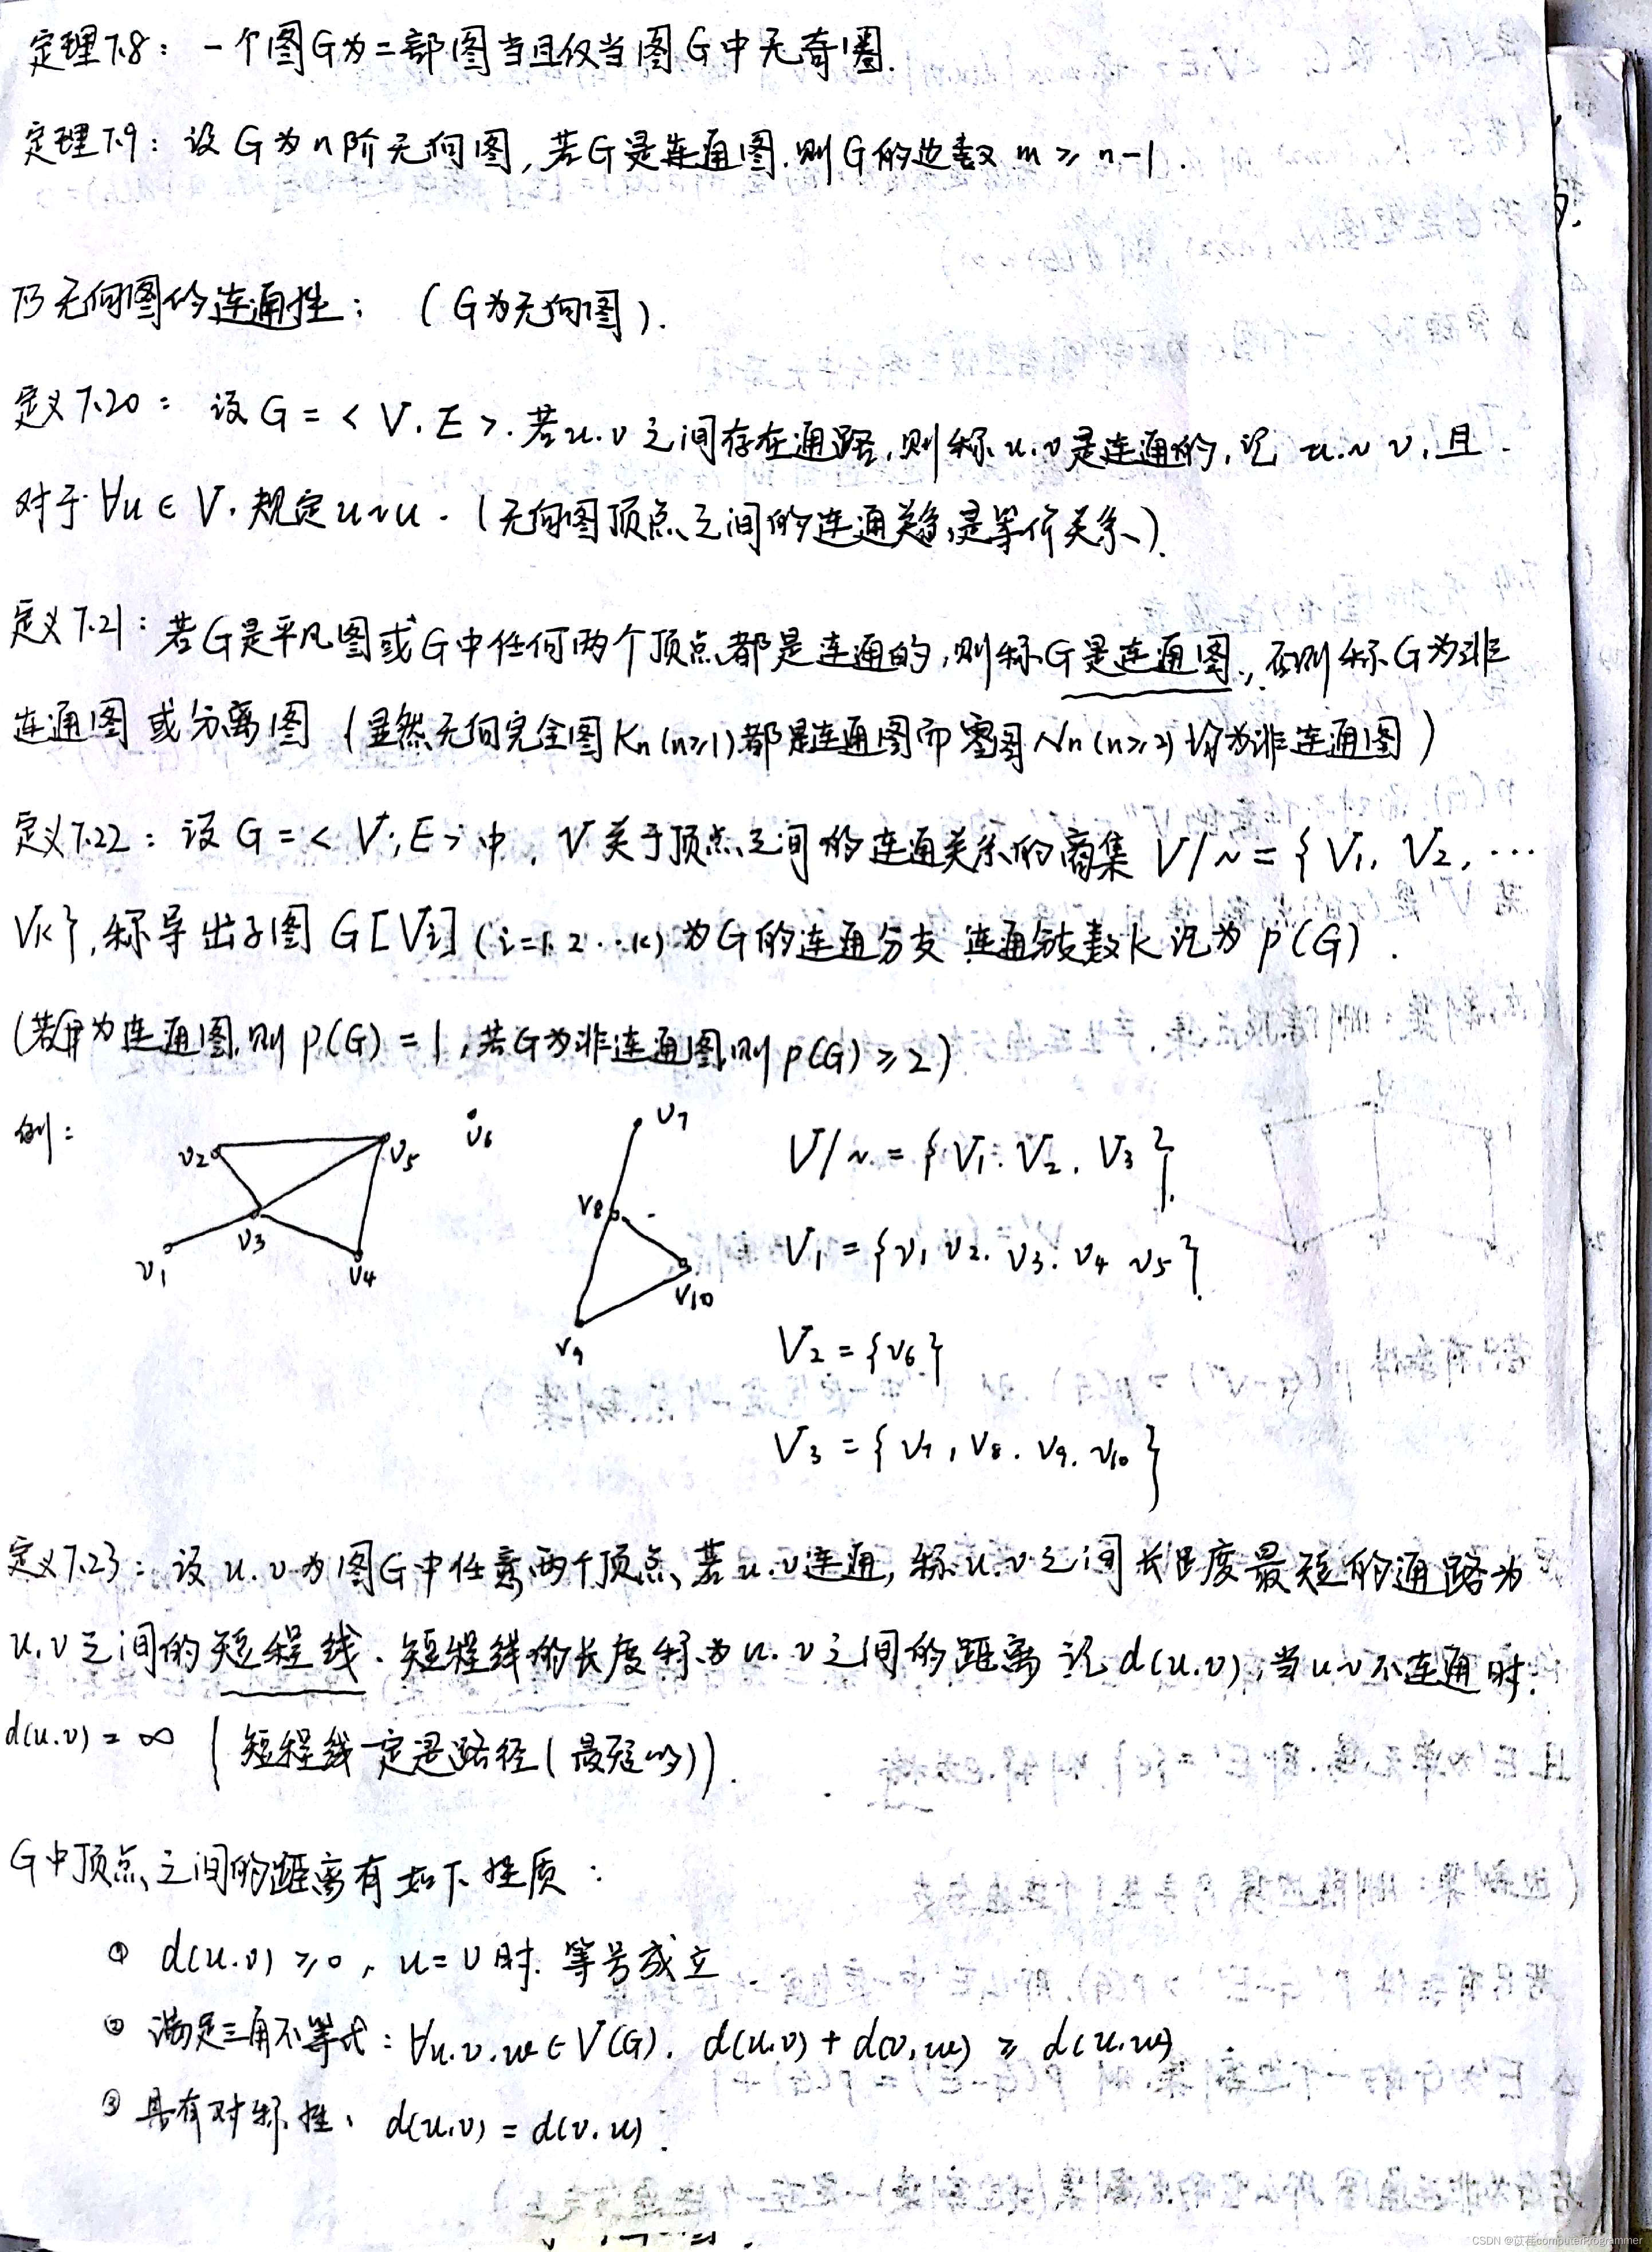 定理7.8：一个图G为二部图当且仅当图G中无奇圈.
定理7.9：设G为n阶无向图,若G是连通图,则G的边数 m ≥ n-1.
7.3 无向图的连通性：（G为无向图）.
定义7.20：设G=<V,E>.若u.v之间存在通路,则称u.v是连通的,记 u~v,且
对于∀u∈V.规定u~u.(无向图顶点之间的连通关系是等价关系).
定义7.21：若G是平凡图或G中任何两个顶点都是连通的,则称G是连通图,否则称G为非
连通图或分离图(显然无向完全图Kn(n≥1)都是连通图而零图Nn(n≥2)均为非连通图)
定义7.22：设G=<V,E>中,V关于顶点之间的连通关系的商集V/~={V1,V2,…
Vk},称导出子图G[Vi](i=1.2…k)为G的连通分支 连通分支数k记为p(G).
(若 为连通图,则p(G)=1,若G为非连通图,则p(G)≥2)
例：
v1 v2 v3 v4 v5
v6
v7 v8 v9 v10
V/~={V1.V2.V3}.
V1={v1 v2.v3.v4 v5}.
V2={v6}
V3={v7,v8.v9.v10}
定义7.23：设u.v为图G中任意两个顶点、若u.v连通,称u.v之间长度最短的通路为
u.v之间的短程线.短程线的长度称为u.v之间的距离记d(u.v),当u v不连通时.
d(u.v)=∞ (短程线一定是路径(最短的)).
G中顶点之间的距离有如下性质：
① d(u.v)≥0,u=v时.等号成立
② 满足三角不等式：∀u.v.w∈V(G).d(u.v)+d(v,w)≥d(u.w)
③ 具有对称性、d(u.v)=d(v.u).
CSDN @苡荏computerProgrammer